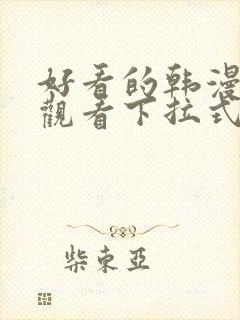 好看的韩漫
觀看下拉式
柴東亞